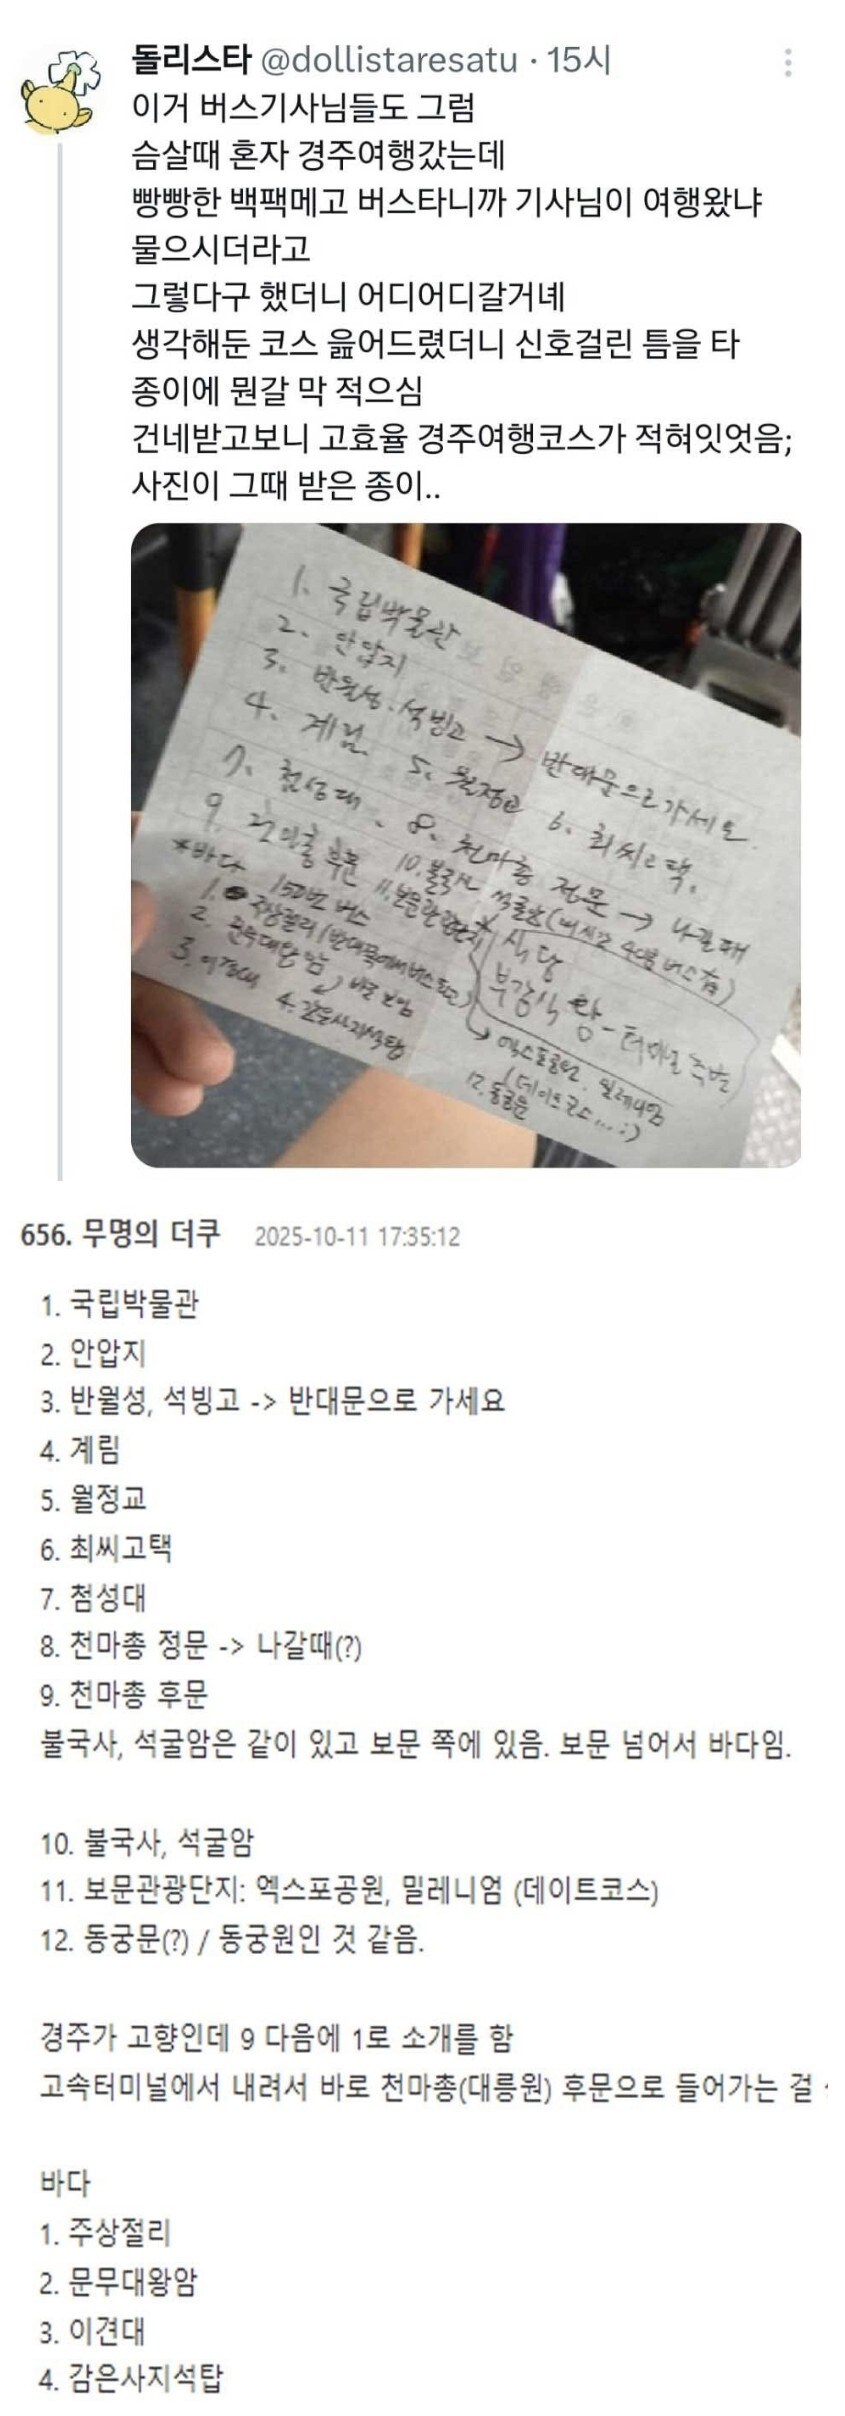 돌리스타 @dollistaresatu · 15시
이거 버스기사님들도 그럼
슴살때 혼자 경주여행갔는데
빵빵한 백팩메고 버스타니까 기사님이 여행왔냐
물으시더라고
그렇다구 했더니 어디어디갈거녜
생각해둔 코스 읊어드렸더니 신호걸린 틈을 타
종이에 뭔갈 막 적으심
건네받고보니 고효율 경주여행코스가 적혀잇엇음;
사진이 그때 받은 종이..
1. 국립박물관
2. 안압지
3. 반월성. 석빙고 → 반대문으로 가세요.
4. 계림. 5. 월정교 6. 최씨고택.
7. 첨성대. 8. 천마총 정문 → 나갈때
9. 천마총 후문 10. 불국사 석굴암 (매시간 40분 버스 有)
*바다 150번 버스 11. 보문관광단지 * 식당
1. 주상절리 (반대쪽에서 버스 타고) 부강식당 - 터미널 주변
2. 문무대왕암 바로 보임 → 엑스포공원. 밀레니엄
3. 이견대 4. 감은사지석탑 (데이트코스...:)
12. 동궁원
656. 무명의 더쿠 2025-10-11 17:35:12
1. 국립박물관
2. 안압지
3. 반월성, 석빙고 -> 반대문으로 가세요
4. 계림
5. 월정교
6. 최씨고택
7. 첨성대
8. 천마총 정문 -> 나갈때(?)
9. 천마총 후문
불국사, 석굴암은 같이 있고 보문 쪽에 있음. 보문 넘어서 바다임.
10. 불국사, 석굴암
11. 보문관광단지: 엑스포공원, 밀레니엄 (데이트코스)
12. 동궁문(?) / 동궁원인 것 같음.
경주가 고향인데 9 다음에 1로 소개를 함
고속터미널에서 내려서 바로 천마총(대릉원) 후문으로 들어가는 걸
바다
1. 주상절리
2. 문무대왕암
3. 이견대
4. 감은사지석탑